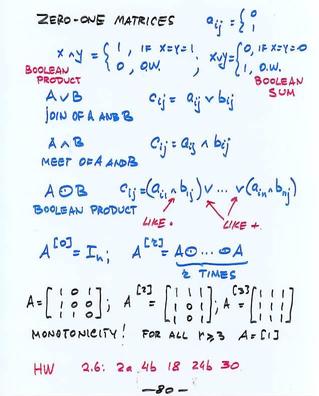 ZERO-ONE MATRICES aij = { 0 1
x ∧ y = { 1, IF x=y=1 0, O.W. ; x∨y = { 0, IF x=y=0 1, O.W.
BOOLEAN PRODUCT BOOLEAN SUM
A ∨ B cij = aij ∨ bij
JOIN OF A AND B
A ∧ B cij = aij ∧ bij
MEET OF A AND B
A ⊙ B cij = (ai1 ∧ b1j) ∨ ... ∨ (ain ∧ bnj)
BOOLEAN PRODUCT
LIKE • LIKE +
A[0] = In; A[r] = A⊙ ... ⊙A
r TIMES
A = [1 0 1; 1 0 0; 0 1 0]; A[2] = [1 1 1; 1 0 1; 1 0 0]; A[3] = [1 1 1; 1 1 1; 1 1 1]
MONOTONICITY! FOR ALL r ≥ 3 A = [1]
HW 2.6: 2a 4b 18 24b 30
—80—